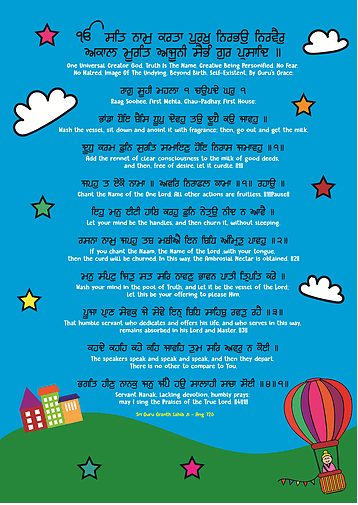 ੴ ਸਤਿ ਨਾਮੁ ਕਰਤਾ ਪੁਰਖੁ ਨਿਰਭਉ ਨਿਰਵੈਰੁ
ਅਕਾਲ ਮੂਰਤਿ ਅਜੂਨੀ ਸੈਭੰ ਗੁਰ ਪ੍ਰਸਾਦਿ ॥
One Universal Creator God. Truth Is The Name. Creative Being Personified. No Fear.
No Hatred. Image Of The Undying. Beyond Birth. Self-Existent. By Guru's Grace:
ਰਾਗੁ ਸੂਹੀ ਮਹਲਾ ੧ ਚਉਪਦੇ ਘਰੁ ੧
Raag Soohee, First Mehla, Chau-Padhay, First House:
ਭਾਂਡਾ ਧੋਇ ਬੈਸਿ ਧੂਪੁ ਦੇਵਹੁ ਤਉ ਦੂਧੈ ਕਉ ਜਾਵਹੁ ॥
Wash the vessel, sit down and anoint it with fragrance; then, go out and get the milk.
ਦੂਧੁ ਕਰਮ ਫੁਨਿ ਸੁਰਤਿ ਸਮਾਇਣੁ ਹੋਇ ਨਿਰਾਸ ਜਮਾਵਹੁ ॥੧॥
Add the rennet of clear consciousness to the milk of good deeds,
and then, free of desire, let it curdle. ||1||
ਜਪਹੁ ਤ ਏਕੋ ਨਾਮਾ ॥ ਅਵਰਿ ਨਿਰਾਫਲ ਕਾਮਾ ॥੧॥ ਰਹਾਉ ॥
Chant the Name of the One Lord. All other actions are fruitless. ||1||Pause||
ਇਹੁ ਮਨੁ ਈਟੀ ਹਾਥਿ ਕਰਹੁ ਫੁਨਿ ਨੇਤ੍ਰਉ ਨੀਦ ਨ ਆਵੈ ॥
Let your mind be the handles, and then churn it, without sleeping.
ਰਸਨਾ ਨਾਮੁ ਜਪਹੁ ਤਬ ਮਥੀਐ ਇਨ ਬਿਧਿ ਅੰਮ੍ਰਿਤੁ ਪਾਵਹੁ ॥੨॥
If you chant the Naam, the Name of the Lord with your tongue,
then the curd will be churned. In this way, the Ambrosial Nectar is obtained. ||2||
ਮਨੁ ਸੰਪਟੁ ਜਿਤੁ ਸਤ ਸਰਿ ਨਾਵਣੁ ਭਾਵਨ ਪਾਤੀ ਤ੍ਰਿਪਤਿ ਕਰੇ ॥
Wash your mind in the pool of Truth, and let it be the vessel of the Lord;
let this be your offering to please Him.
ਪੂਜਾ ਪ੍ਰਾਣ ਸੇਵਕੁ ਜੇ ਸੇਵੇ ਇਨ੍ਹ ਬਿਧਿ ਸਾਹਿਬੁ ਰਵਤੁ ਰਹੈ ॥੩॥
That humble servant who dedicates and offers his life, and who serves in this way,
remains absorbed in his Lord and Master. ||3||
ਕਹਦੇ ਕਹਹਿ ਕਹੇ ਕਹਿ ਜਾਵਹਿ ਤੁਮ ਸਰਿ ਅਵਰੁ ਨ ਕੋਈ ॥
The speakers speak and speak and speak, and then they depart.
There is no other to compare to You.
ਭਗਤਿ ਹੀਣੁ ਨਾਨਕੁ ਜਨੁ ਜੰਪੈ ਹਉ ਸਾਲਾਹੀ ਸਚਾ ਸੋਈ ॥੪॥੧॥
Servant Nanak, lacking devotion, humbly prays:
may I sing the Praises of the True Lord. ||4||1||
Sri Guru Granth Sahib Ji - Ang 728